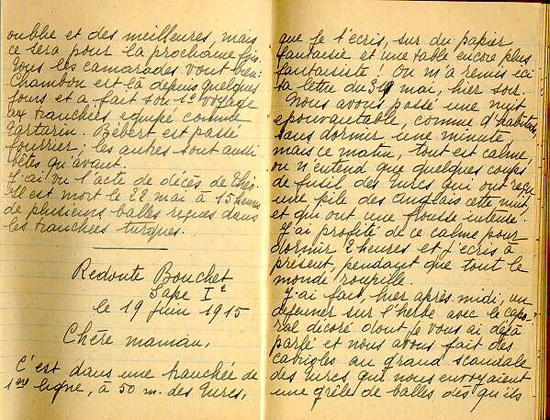 oublié et des meilleures, mais
ce sera pour la prochaine fois.
Tous les camarades vont bien:
Chambon est là depuis quelques
jours et a fait son 1er voyage
aux tranchées équipé comme
Tartarin. Bébert est passé
fourrier; les autres sont aussi
bêtes qu'avant.
J'ai vu l'acte de décès de
Il est mort le 22 mai à 15 heures
de plusieurs balles reçues dans
les tranchées turques.
Redoute Bouchet
Sape I
le 19 juin 1915
Chère maman,
C'est dans une tranchée de
1ère ligne, à 50 m. des Turcs,
que je t'écris, sur du papier
fantaisie et une table encore plus
fantaisiste! On m'a remis ici
ta lettre du 31 mai, hier soir.
Nous avons passé une nuit
épouvantable, comme d'habitude,
sans dormir une minute
mais ce matin, tout est calme,
on n'entend que quelques coups
de fusil des Turcs qui ont reçu
une pile des Anglais cette nuit
et qui ont une frousse intense.
J'ai profité de ce calme pour
dormir 2 heures et j'écris à
présent, pendant que tout le
monde roupille.
J'ai fait, hier après-midi, un
déjeuner sur l'herbe avec le capo-
ral décoré dont je vous ai déjà
parlé et nous avons fait des
cabrioles au grand scandale
des Turcs qui nous envoyaient
une grêle de balles dès qu'ils